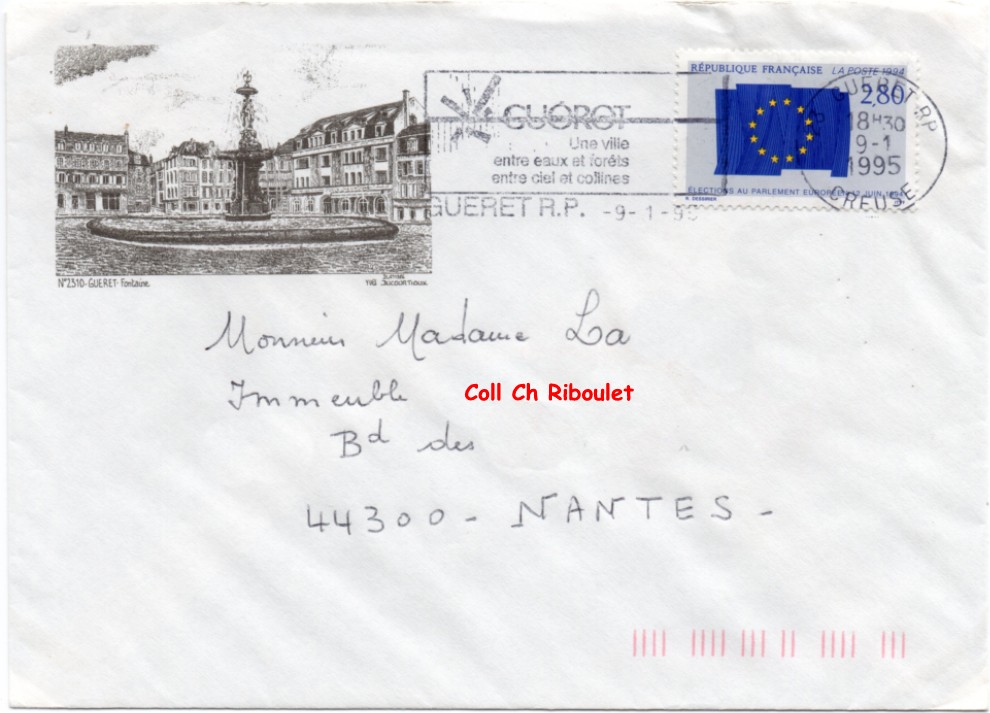 RÉPUBLIQUE FRANÇAISE LA POSTE 1994
2,80
ÉLECTIONS AU PARLEMENT EUROPÉEN 12 JUIN 1994
GUERET RP
18H30
9-1
1995
CREUSE
GUÉRET
Une ville
entre eaux et forêts
entre ciel et collines
GUERET R.P. -9-1-95
N°2310-GUERET-Fontaine.
YVES DUCOURTIOUX
Monsieur Madame La
Immeuble
Coll Ch Riboulet
Bd des
44300 - NANTES -